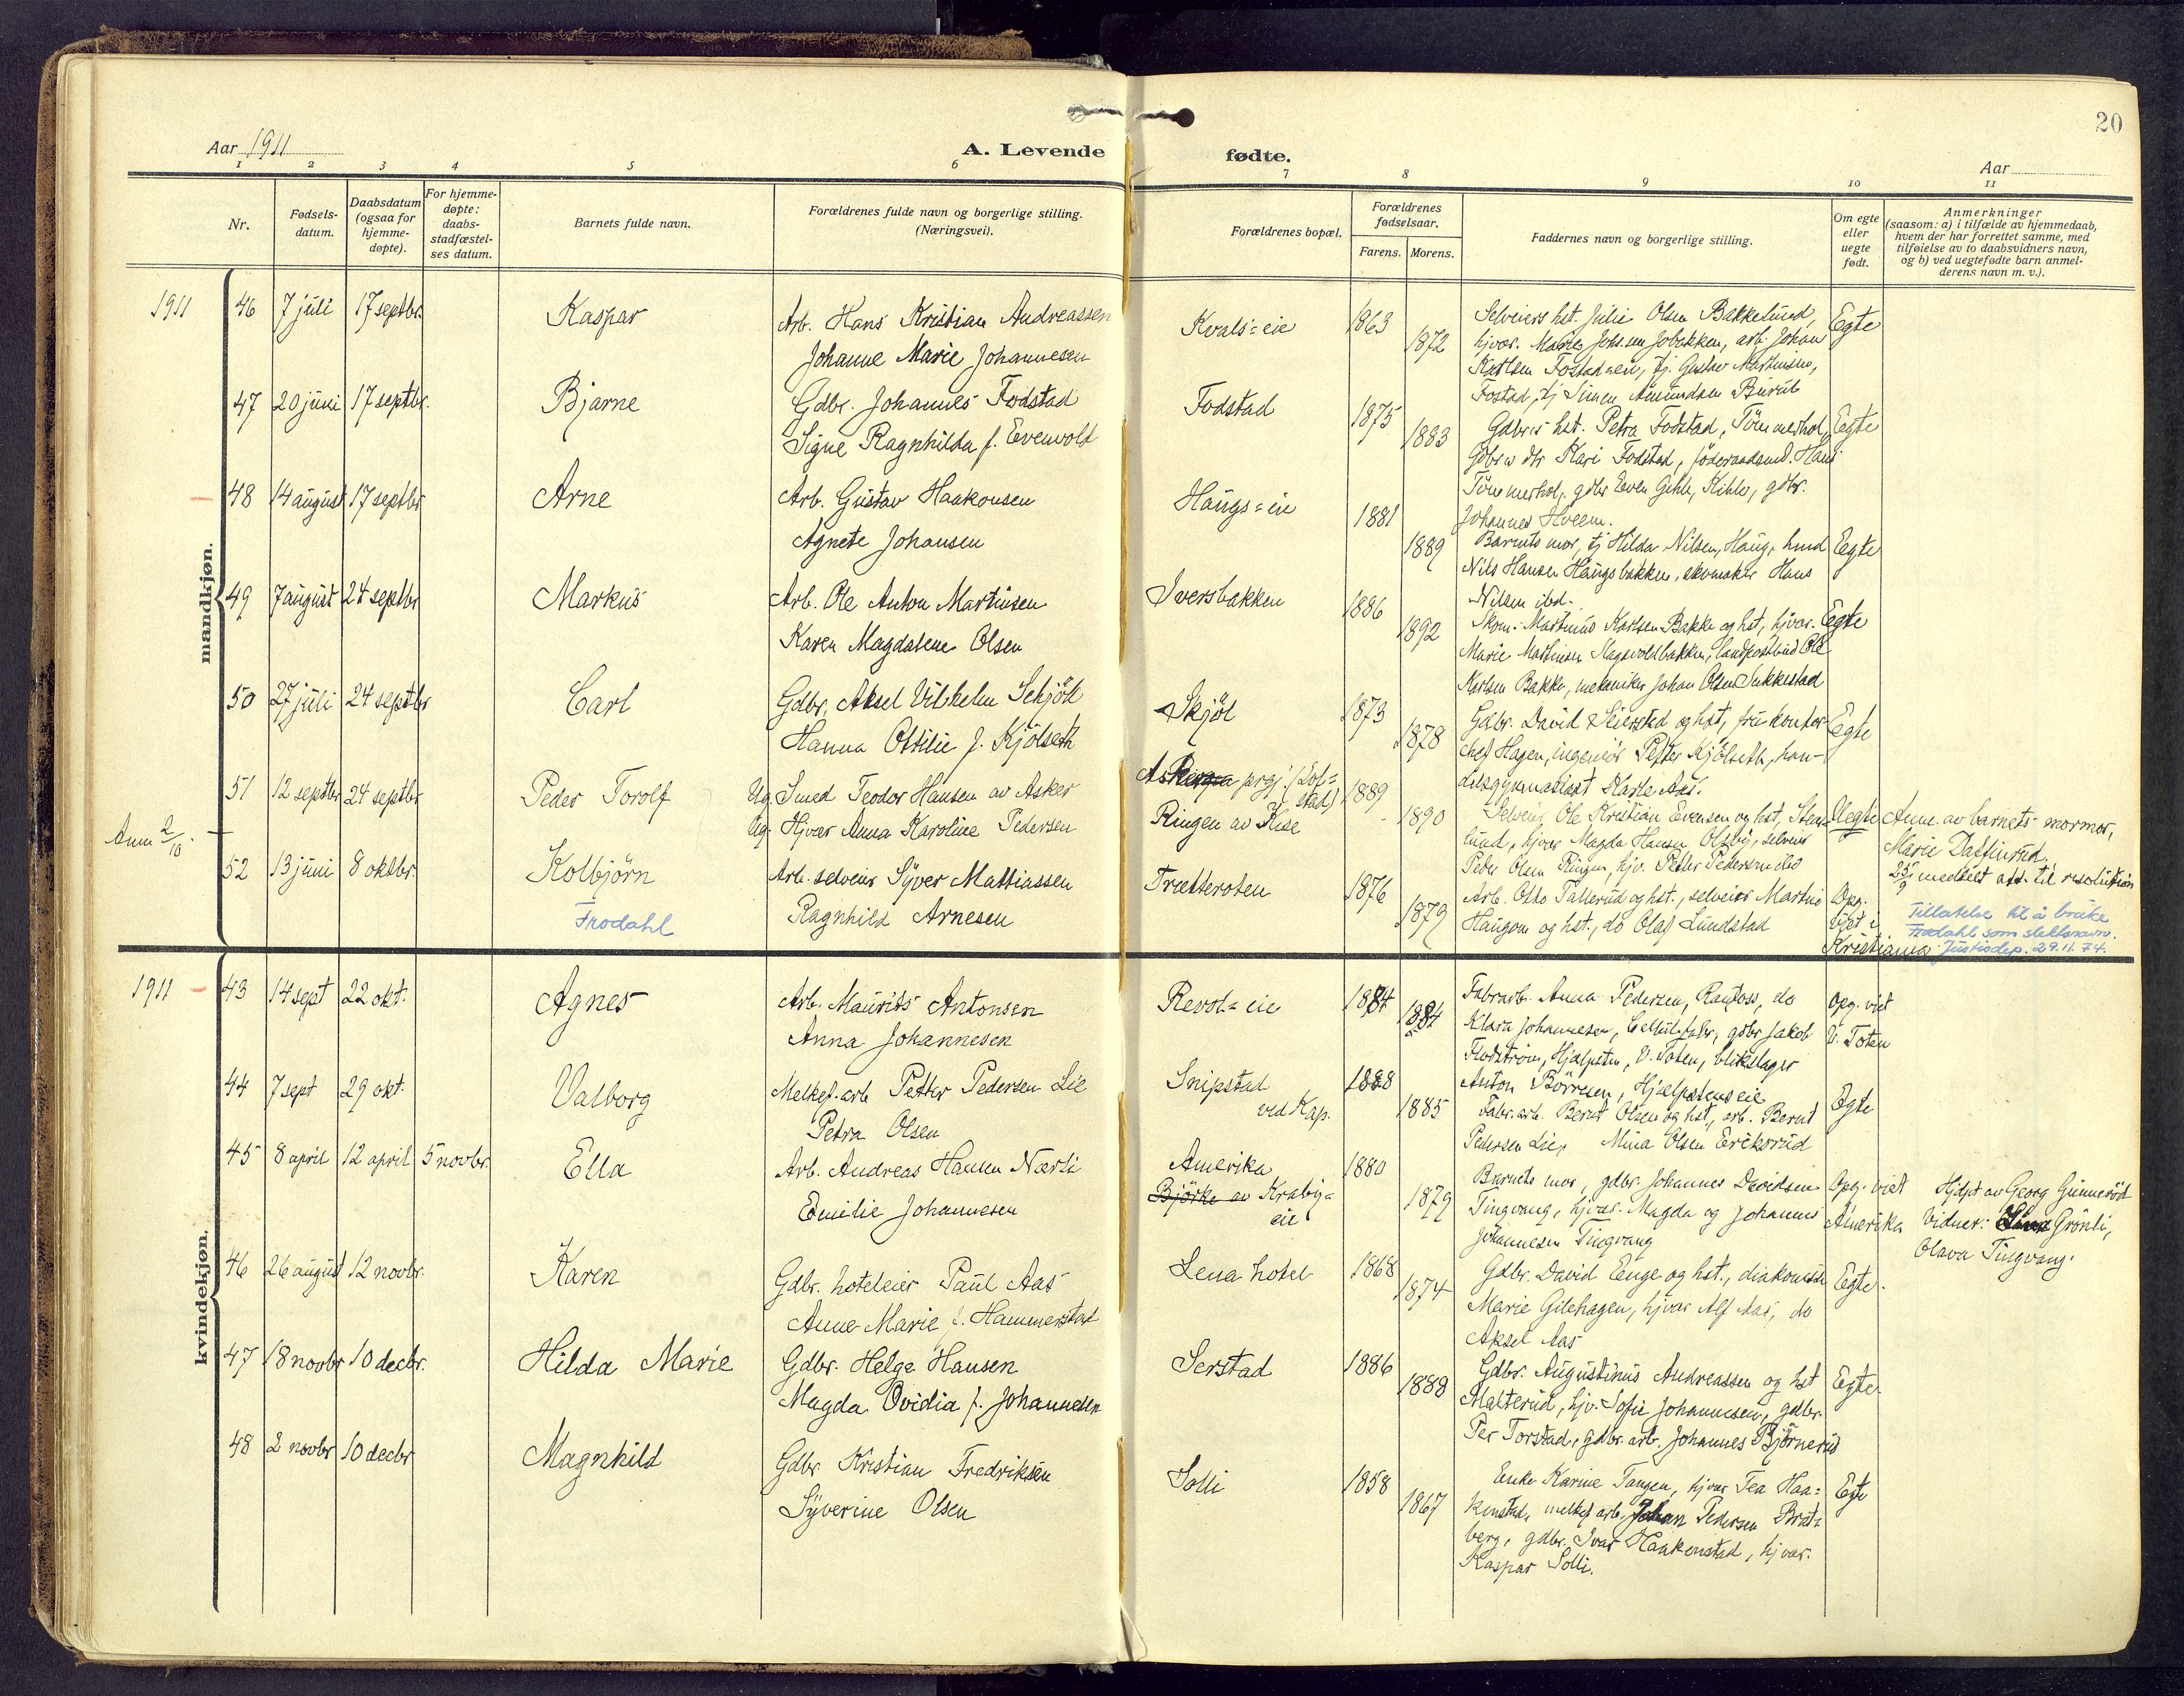 20
Aar 1911
A. Levende fødte.
Aar
1 2 3 4 5 6 7 8 9 10 11
Nr.
Fødsels-
datum.
Daabsdatum
(ogsaa for
hjemme-
døpte).
For hjemme-
døpte:
daabs-
stadfæstel-
ses datum.
Barnets fulde navn.
Forældrenes fulde navn og borgerlige stilling.
(Næringsvei).
Forældrenes bopæl.
Forældrenes
fødselsaar.
Farens. Morens.
Faddernes navn og borgerlige stilling.
Om egte
eller
uegte
født.
Anmerkninger
(saasom: a) i tilfælde av hjemmedaab,
hvem der har forrettet samme, med
tilføielse av to daabsvidners navn,
og b) ved uegtefødte barn anmel-
derens navn m. v.).
mandkjøn.
1911 46 7 juli 17 septbr. Kaspar Arb. Hans Kristian Andreassen
Johanne Marie Johannesen
Kvals=eie 1863 1872 Egte
Selveiers hst. Julie Olsen Bakkelund,
Karlsen Fostadeien, tj. Gustav Martinsen,
47 20 juni 17 septbr. Bjarne Gdbr. Johannes Fodstad
Signe Ragnhilda f. Evenvold
Fodstad 1875 1883 Egte
Gdbr.s hst. Petra Fodstad, Tömmerhol,
Gdbr.s dtr Kari Fodstad, föderaadsmd. Hans
Tömmerhol, gdbr Even Gihle, Kihle, gdbr.
Johannes Hveem.
48 14 august 17 septbr Arne Arb. Gustav Haakonsen
Agnete Johansen
Haugs=eie 1881 1889 Egte
Barnets mor, tj Hilda Nilsen, Haug, hmd
Nils Hansen Haugsbakken, skomaker Hans
Nilsen ibd.
49 7 august 24 septbr Markus Arb. Ole Anton Martinsen
Karen Magdalene Olsen
Iversbakken 1886 1892 Egte
Skom. Martinus Karlsen Bakke og hst, hjvær.
Marie Martinsen Hagevoldbakken, landpostbud Ole
Karlsen Bakke, mekaniker Johan Olsen Sukkestad
50 27 juli 24 septbr Carl Gdbr. Aksel Vilhelm Schjöll
Hanna Ottilie f. Kjölseth
Skjöl 1873 1878 Egte
Gdbr. David Seierstad og hst, fru kontor-
chef Hagen, ingeniör Petter Kjölseth, han-
delsgymnasiast Marte Aas.
51 12 septbr 24 septbr Peder Torolf Ug. Smed Teodor Hansen av Asker
Ug. Hjvær Anna Karoline Pedersen
Asker prgj. (Lof=
stad)
Ringen av Kise
1889 1890 Uegte
Selveier Ole Kristian Evensen og hst, Sten=
lund, hjvær Magda Hansen Olsby, selveier
Peder Olsen Ringen, hjv. Petter Pedersen ibd
Anm. av barnets mormor,
Marie Dattinrud
25/9 meddelt att. til resolution
Anm 2/10.
52 13 juni 8 oktbr. Kolbjörn Arb. selveier Syver Mattiassen
Frodahl Ragnhild Arnesen
Trætteroten 1876 1879
Arb. Otto Tallerud og hst., selveier Martin
Haugom og hst., do Olaf Lundstad
Opg.
viet i
Kristiania
Tillatelse til å bruke
Frodahl som slektsnavn.
Justisdep. 29.11.74.
kvindekjøn.
1911 43 14 sept 22 okt. Agnes Arb. Maurits Antonsen
Anna Johannesen
Revol=eie 1884 1884
Fabrarb. Anna Pedersen, Raufoss, do
Klara Johannesen, Cellulfabr, gdbr Jakob
Flodström, Hjælpsten, V. Toten, blikslager
Anton Börresen, Hjælpstens eie
Opg. viet
V. Toten
44 7 sept 29 okt. Valborg Melkef. arb Petter Pedersen Lie
Petra Olsen
Snipstad
ved Kap.
1888 1885 Egte
Fabr. arb. Bernt Olsen og hst, arb. Bernt
Pedersen Lie, Mina Olsen Eriksrud
45 8 april 12 april 5 novbr. Ella Arb. Andreas Hansen Nærli
Emilie Johannesen
Amerika
Björke av Krabig=
eie
1880 1879
Barnets mor, gdbr. Johannes Davidsen
Tingvang, hjvær. Magda og Johannes
Johannesen Tingvang
Opg. viet
Amerika
Hjdpt av Georg Gunneröd
Vidner: Grönli,
Olava Tingvang.
46 26 august 12 novbr. Karen Gdbr. hoteleier Paul Aas
Anne Marie f. Hammerstad
Lena hotel 1868 1874 Egte.
Gdbr. David Enge og hst., diakonisse
Marie Gilehagen, hjvær Alf Aas, do
Aksel Aas
47 18 novbr 10 decbr. Hilda Marie Gdbr. Helge Hansen
Magda Ovidia f. Johannesen
Serstad 1886 1888 Egte.
Gdbr. Augustinus Andreassen og hst
Malterud, hjv. Sofie Johannesen, gdbr
Per Torstad, gdbr. arb. Johannes Björnerud
48 2 novbr 10 decbr Magnhild Gdbr Kristian Fredriksen
Syverine Olsen
Solli 1858 1867 Egte
Enke Karine Tangen, hjvær Tea Haa=
kenstad, melkef arb. Johan Pedersen Brat=
berg, gdbr. Ivar Haakenstad, hjvær.
Kaspar Solli.